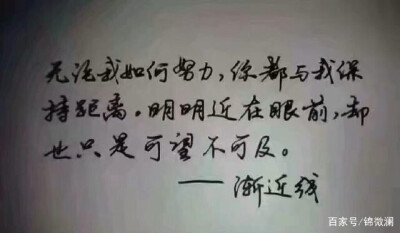 无论我如何努力,你都与我保
持距离。明明近在眼前,却
也只是可望不可及。
——渐近线
百家号/锦微澜